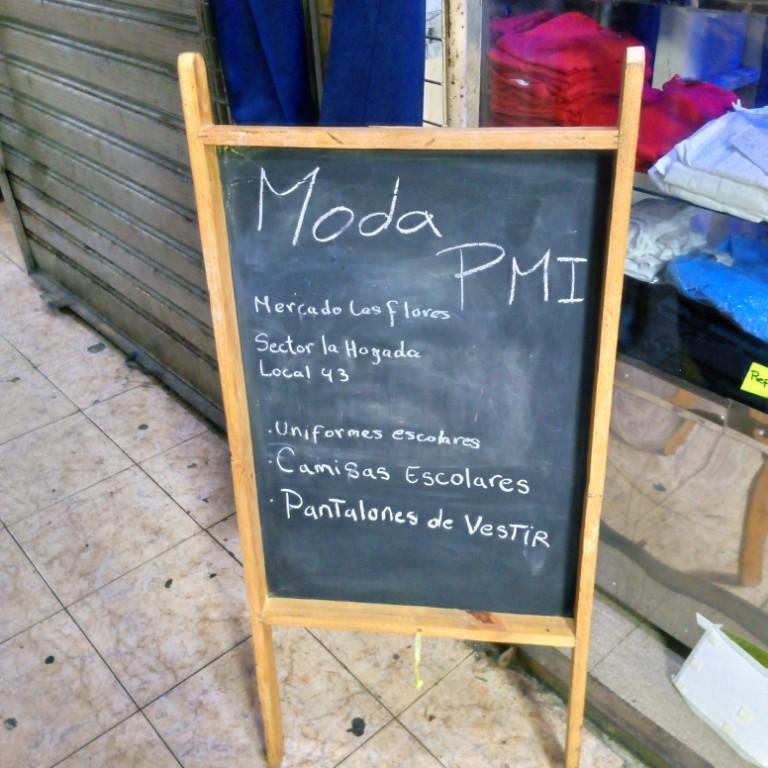 Moda
PMI
Mercado Las flores
Sector la Hoyada
Local 43
.Uniformes escolares
.Camisas Escolares
.Pantalones de Vestir